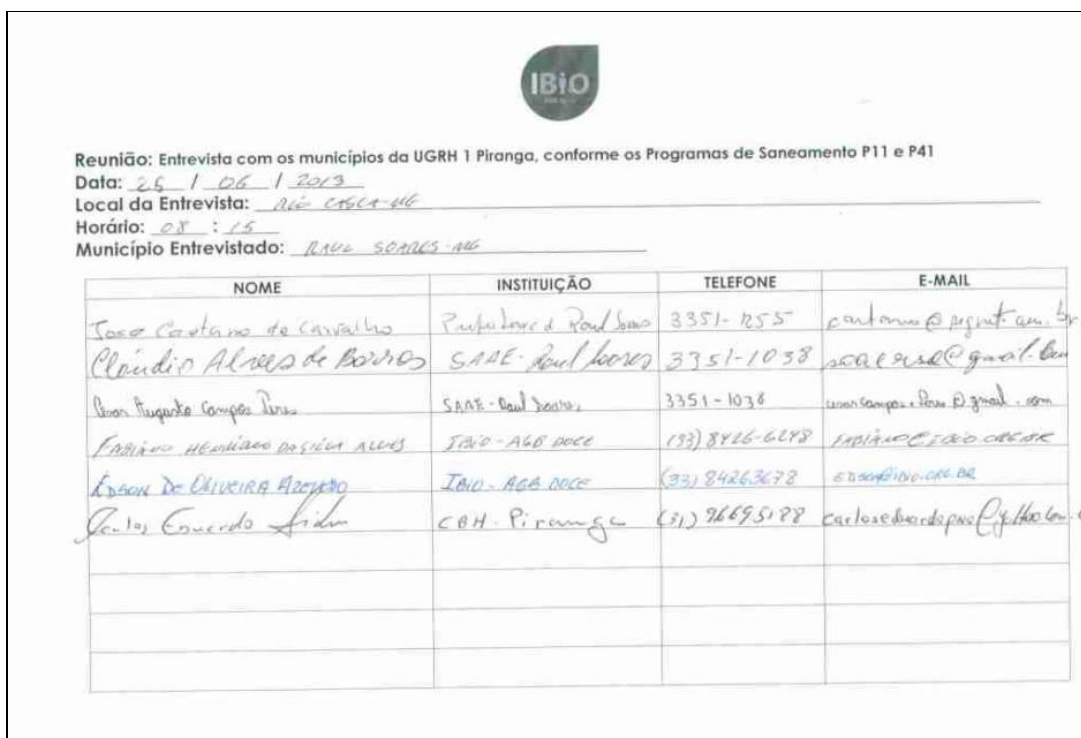 IBiO
Reunião: Entrevista com os municípios da UGRH 1 Piranga, conforme os Programas de Saneamento P11 e P41
Data: 25 / 06 / 2013
Local da Entrevista: RIO CASCA-MG
Horário: 08 : 15
Município Entrevistado: RAUL SOARES-MG
NOME INSTITUIÇÃO TELEFONE E-MAIL
José Caetano de Carvalho Raul Soares 3351-1255
Cláudio Alves de Barros SAAE-Raul Soares 3351-1038
Augusto Campos SAAE-Raul Soares 3351-1038
FABIANO HENRIQUE DA SILVA ALVES IBIO-AGB DOCE (33) 8426-6248
ÉDSON DE OLIVEIRA AZEVEDO IBIO-AGB DOCE (33) 84263678 EDSON@IBIO.ORG.BR
Carlos Eduardo CBH-Piranga (31) 96695188